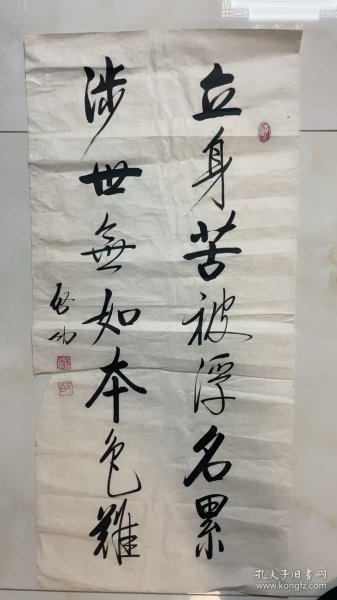 立身苦被浮名累
涉世無如本色難
啓功
孔夫子旧书网
www.kongfz.com